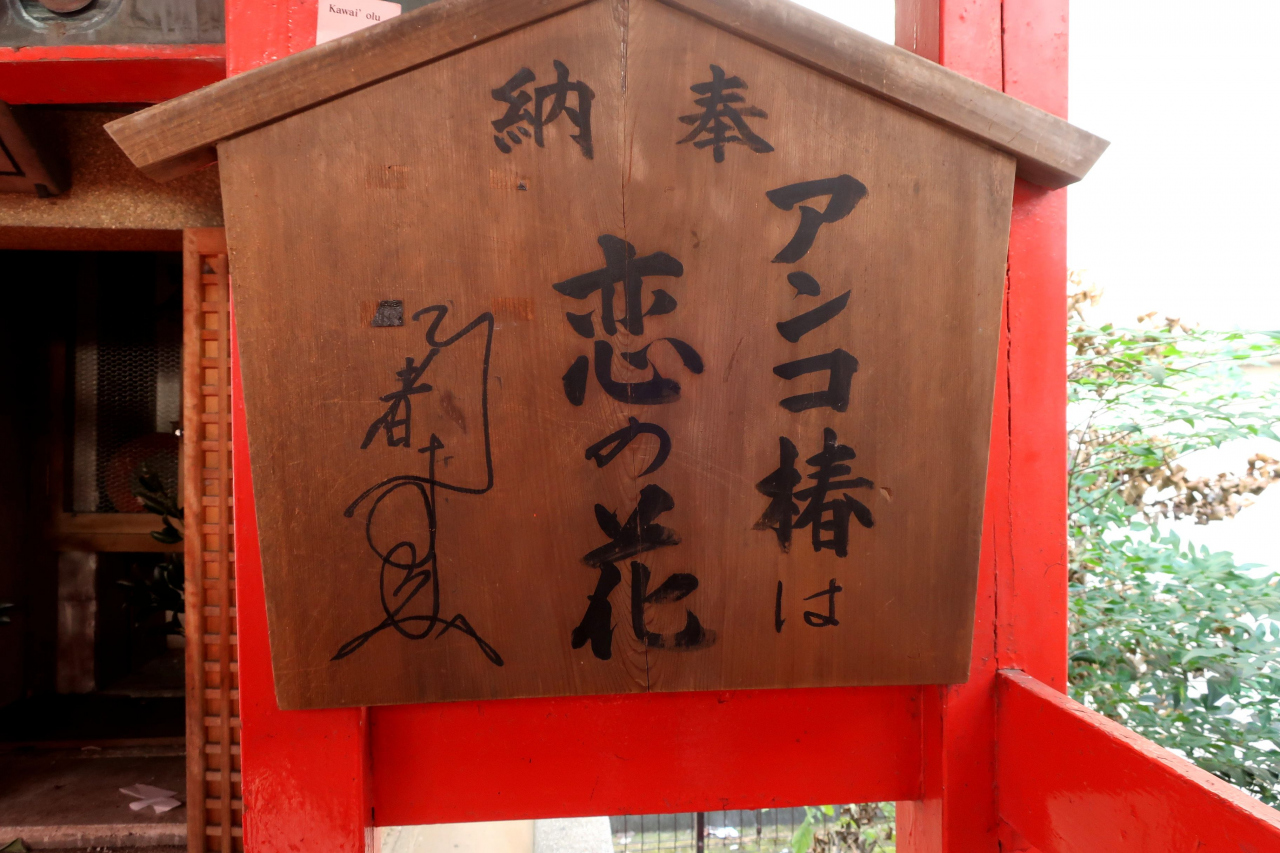 Kawai' olu
奉納
アンコ椿は
恋の花